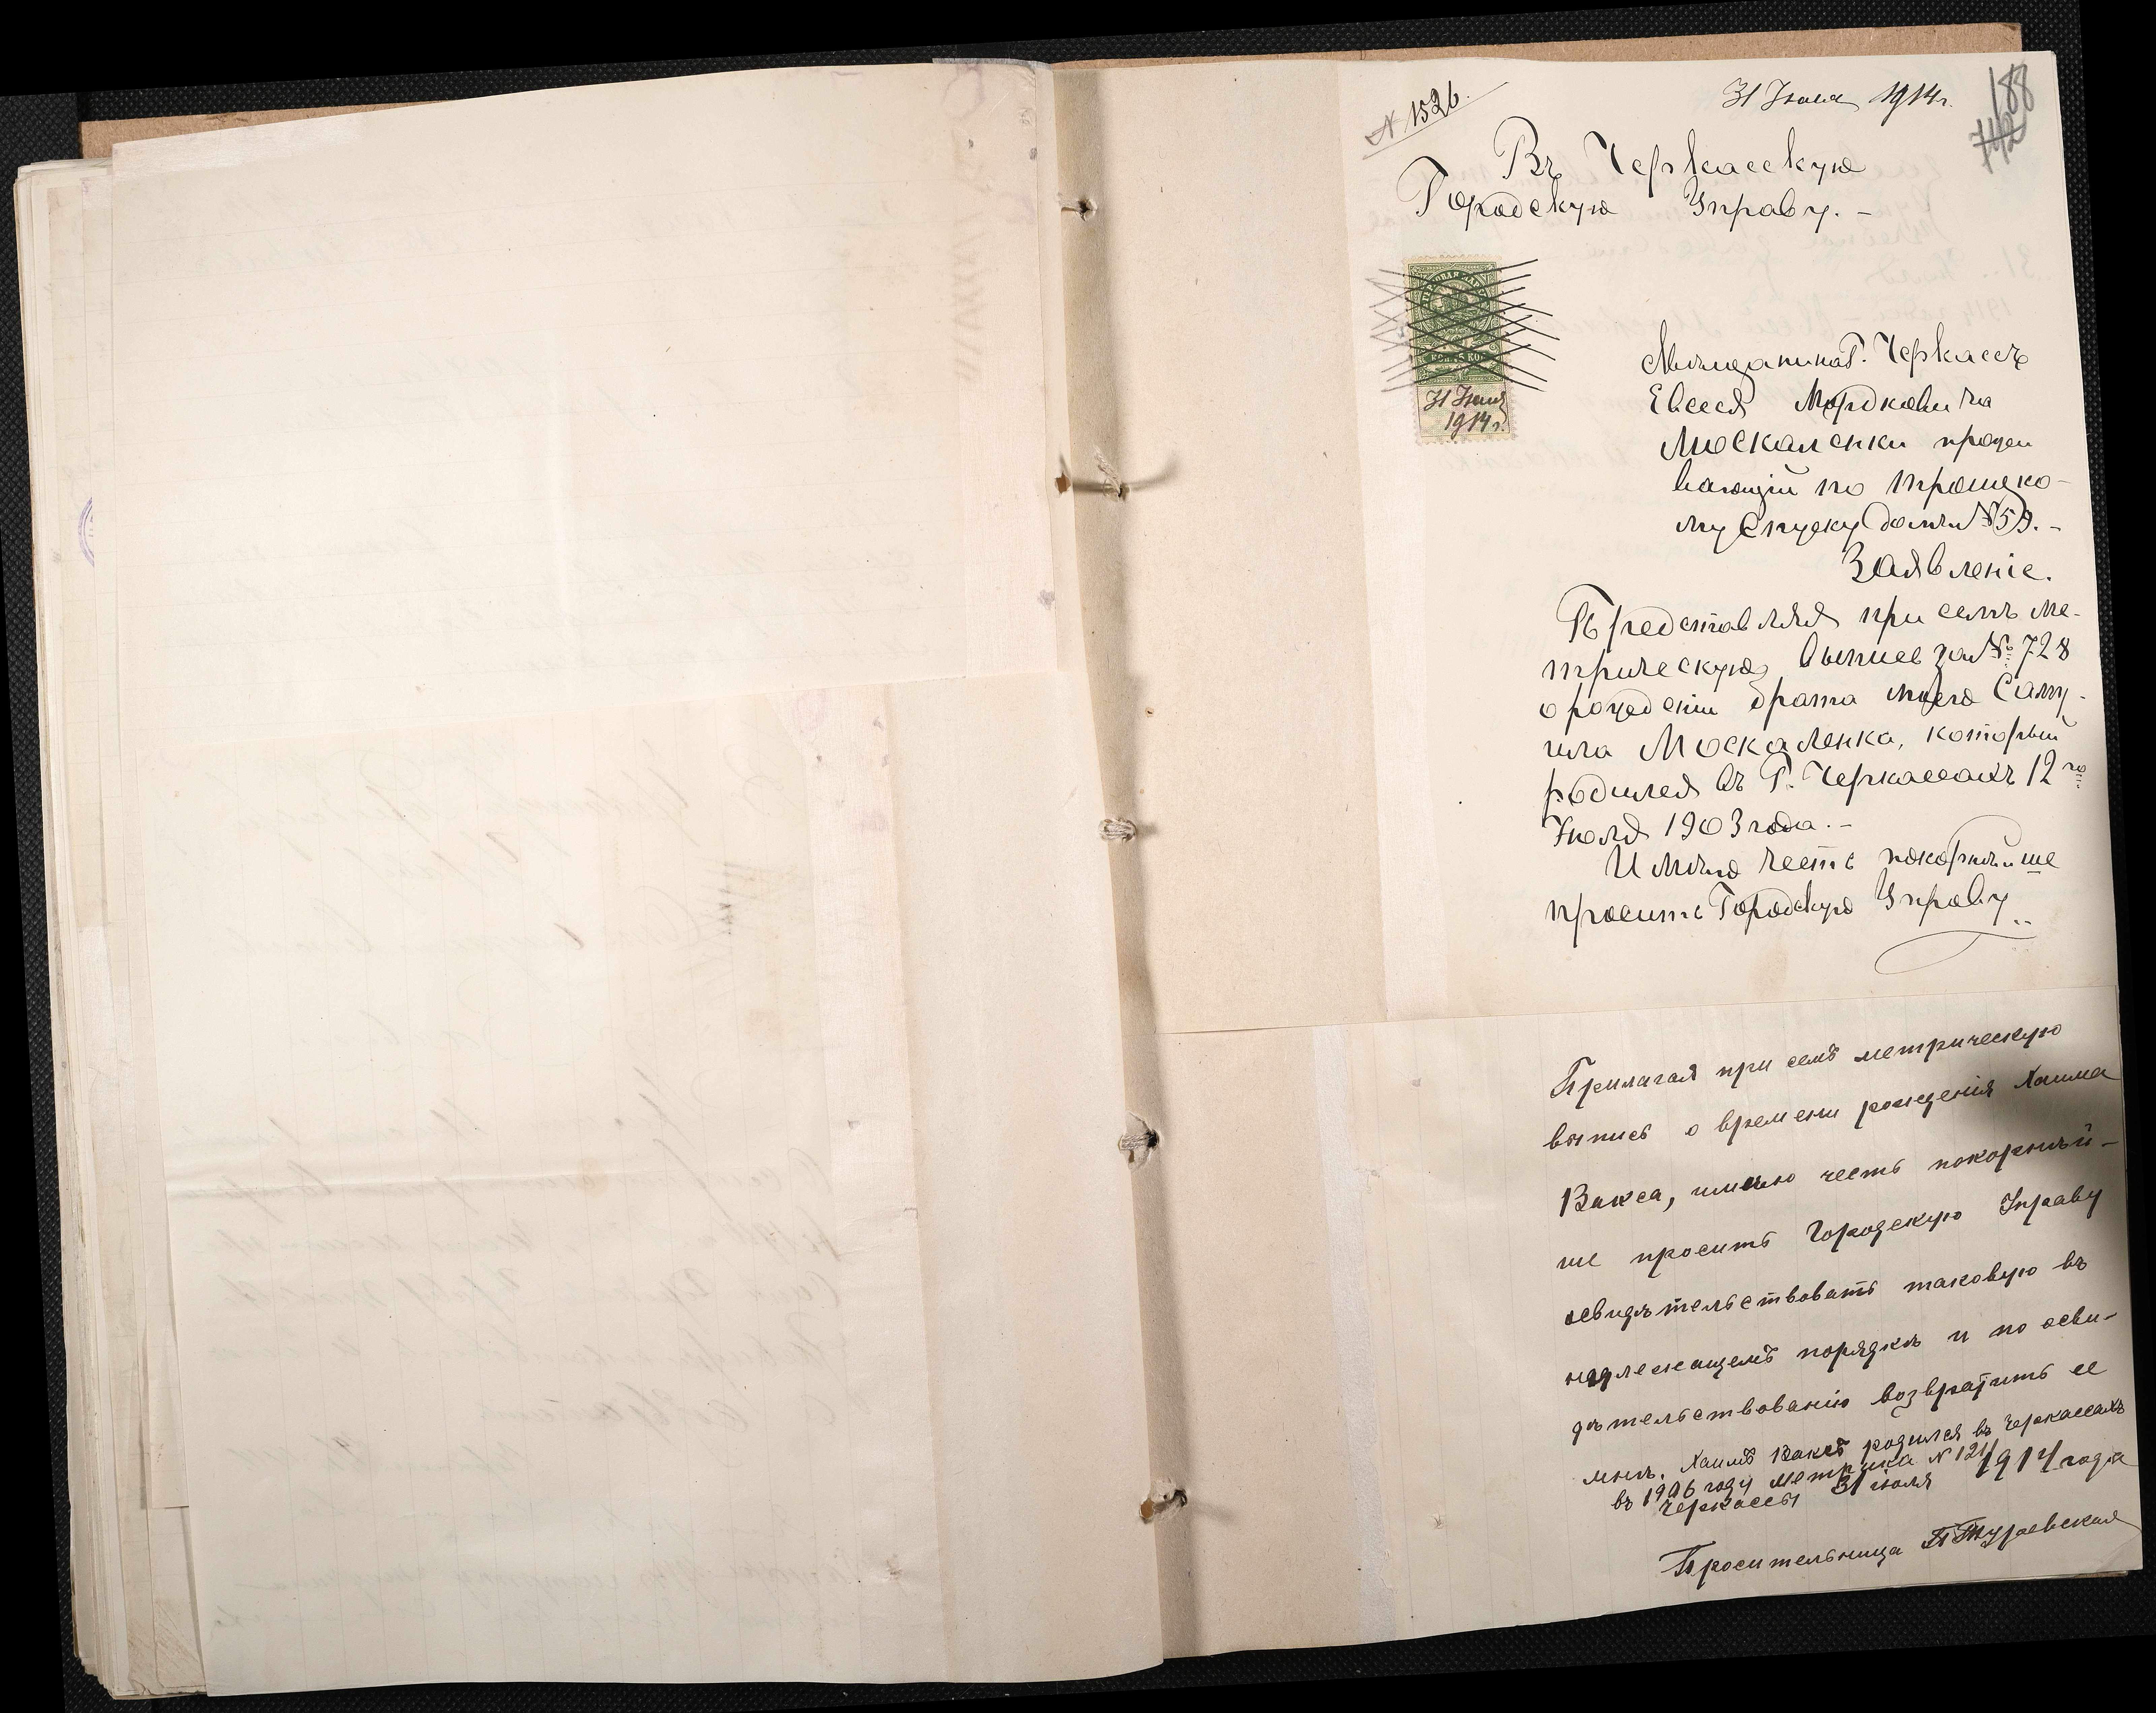 N 1526.
31 Июля 1914 г.
188
742
Въ Черкасскую
Городскую Управу. -
31 Июля
1914 г.
Мѣщанина Г. Черкассъ
Евсея Мордковича
Москаленки прожи
вающій по
му Спуску домъ № 59. -
Заявленіе.
Представляя при семъ ме-
трическую выпись за № 728
о рожденіи брата моего Саму-
ила Москаленка, который
родился въ Г. Черкассахъ 12 го
Июля 1903 года. -
Имѣю честь покорнѣйше
просить Городскую Управу
Прилагая при семъ метрическую
выпись о времени рожденія Хаима
Вакса, имѣю честь покорнѣй-
ше просить Городскую Управу
освидѣтельствовать таковую въ
надлежащемъ порядкѣ и по осви-
дѣтельствованію возвратить ее
мнѣ. Хаимъ Ваксъ родился въ Черкассахъ
въ 1906 году метрика N 121
Черкассы 31 июля 1914 года
Просительница